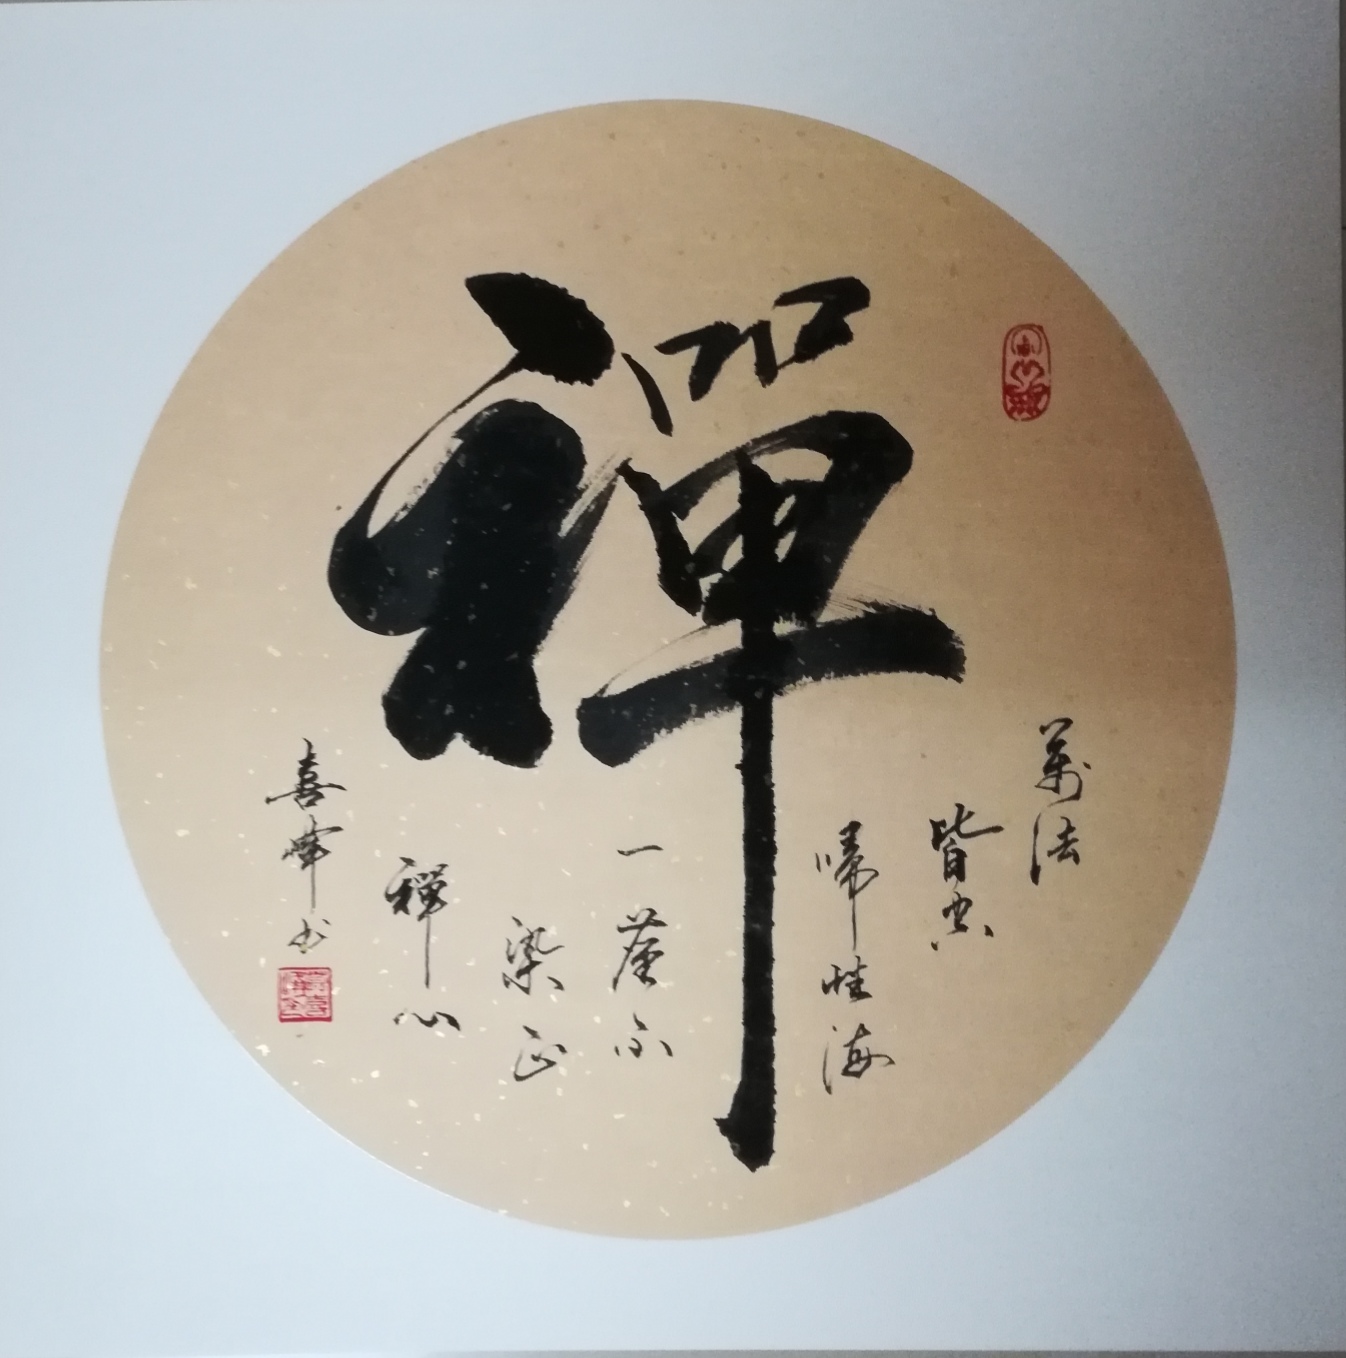 禪
萬法
皆空
歸性海
一塵不
染正
禪心
喜峰书